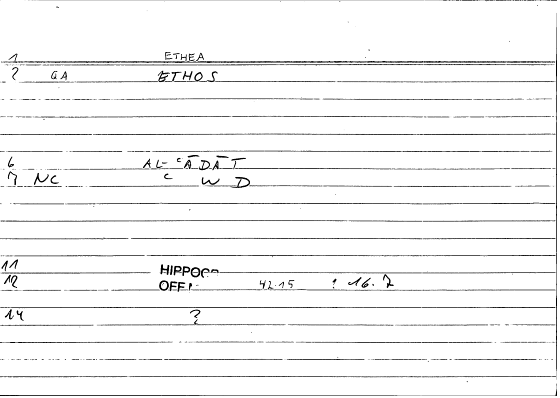 1 ETHEA
2 GA ETHOS
6 AL- ʿĀDĀT
7 NC ʿ W D
11 HIPPOC
12 OFF 42.15 : 16.2
14 ?